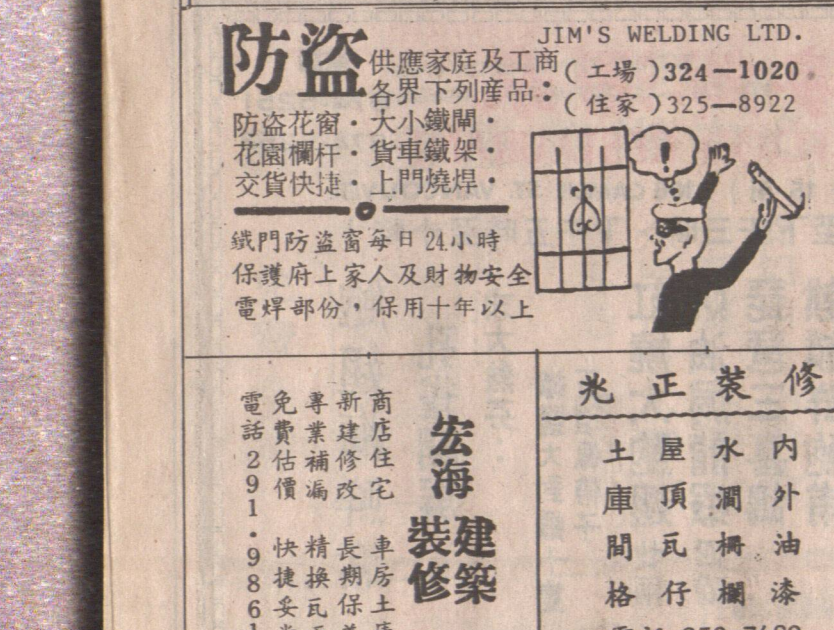 防盜
供應家庭及工商
各界下列産品：
JIM'S WELDING LTD.
(工場)324—1020
(住家)325—8922
防盗花窗·大小鐵閘·
花園欄杆·貨車鐵架·
交貨快捷·上門燒焊·
鐵門防盗窗每日24小時
保護府上家人及財物安全
電焊部份，保用十年以上
!
宏海
建築
裝修
商店住宅 車房土庫
新建修改 長期保
專業補漏 精換瓦
免費估價 快捷妥
電話291·9861
兆正裝修
内外油漆
水涧栅欄
屋頂瓦仔
土庫間格